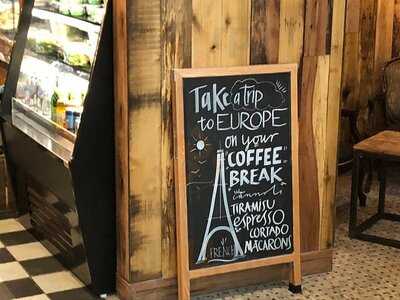 Take a trip
to EUROPE
on your
"COFFEE"
BREAK
cannoli
TIRAMISU
espresso
CORTADO
MACARONS
FRENCH